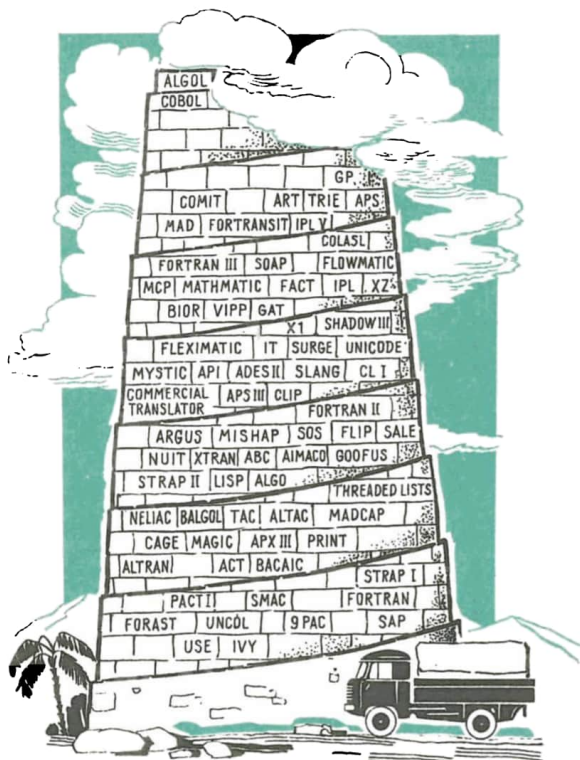 ALGOL
COBOL
GP
COMIT ART TRIE APS
MAD FORTRANSIT IPL V
COLASL
FORTRAN III SOAP FLOWMATIC
MCP MATHMATIC FACT IPL XZ
BIOR VIPP GAT
X1 SHADOW III
FLEXIMATIC IT SURGE UNICODE
MYSTIC API ADES II SLANG CL I
COMMERCIAL
TRANSLATOR APS III CLIP
FORTRAN II
ARGUS MISHAP SOS FLIP SALE
NUIT XTRAN ABC AIMACO GOOFUS
STRAP II LISP ALGO
THREADED LISTS
NELIAC BALGOL TAC ALTAC MADCAP
CAGE MAGIC APX III PRINT
ALTRAN ACT BACAIC
STRAP I
PACT I SMAC FORTRAN
FORAST UNCOL 9 PAC SAP
USE IVY